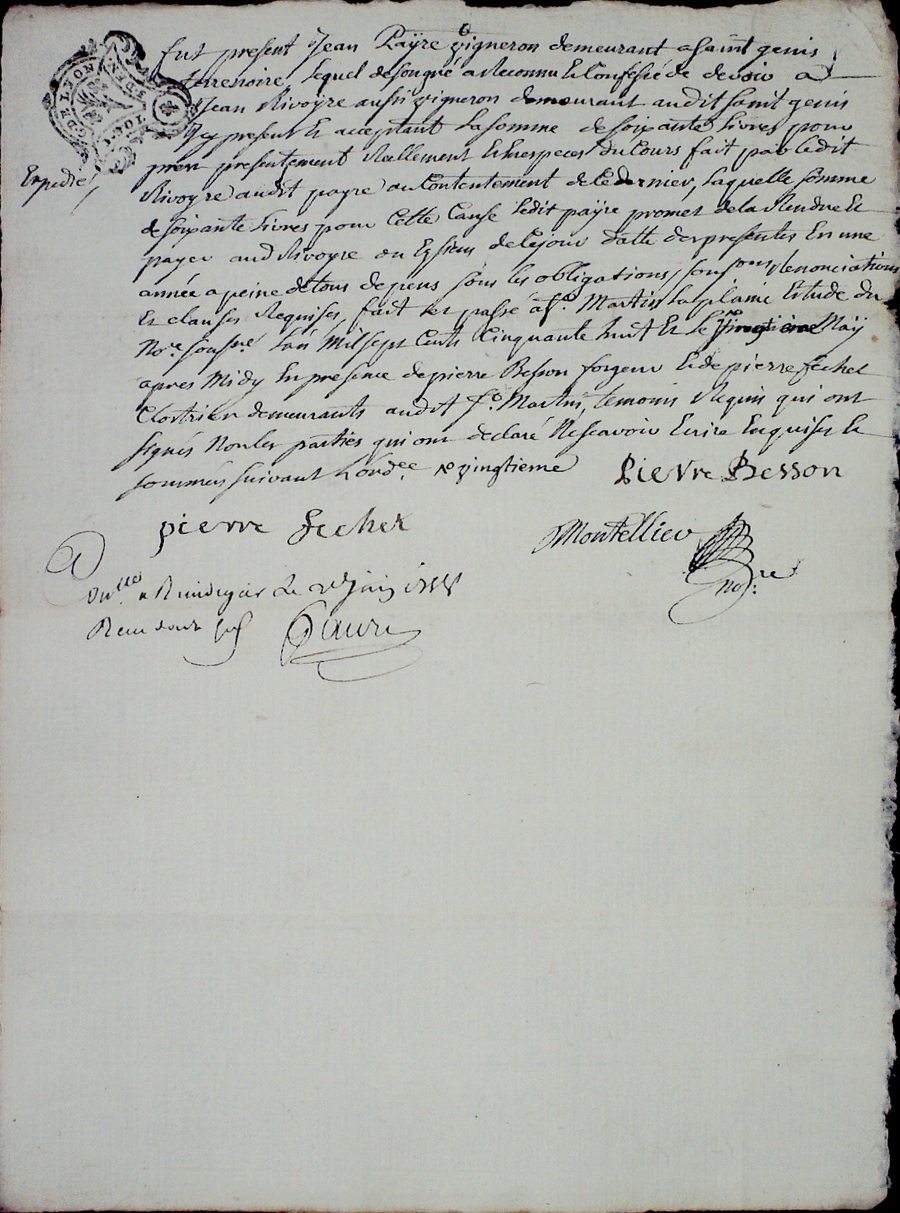 6
fut present Jean Paÿre vigneron demeurant a Saint genis
terrenoire lequel de son gré a Reconnu et Confessé de devoir a
Jean Rivoyre aussi vigneron demeurant audit saint genis
icy present et acceptant la somme de soixante livres pour
prest presentement Reallement et en especes du Cours fait par ledit
Expedié
Rivoyre audit payre au Contentement de ce dernier, laquelle somme
de soixante livres pour Cette Cause ledit paÿre promet de la Rendre et
payer aud Rivoyre ou Es siens de ce jour datte des presentes En une
année a peine de tous depens sous les obligations, renonciations
Et clauses Requises, fait et passé a St. Martin la plaine Etude du
Nore. sousne. L'an Mil sept Cents Cinquante huit Et le Maÿ
apres Midy En presence de pierre Besson forgeur et de pierre fechet
Cloutrier demeurants audit St. Martin, temoins Requis qui ont
signés Non les parties qui ont declaré Ne scavoir Ecrire Enquises et
sommées suivant L'ordce. vingtieme
pierre Besson
pierre fechet
Montellier
nore.
Onlle. a Rivedegier Le juin 1758
Receu douze sols